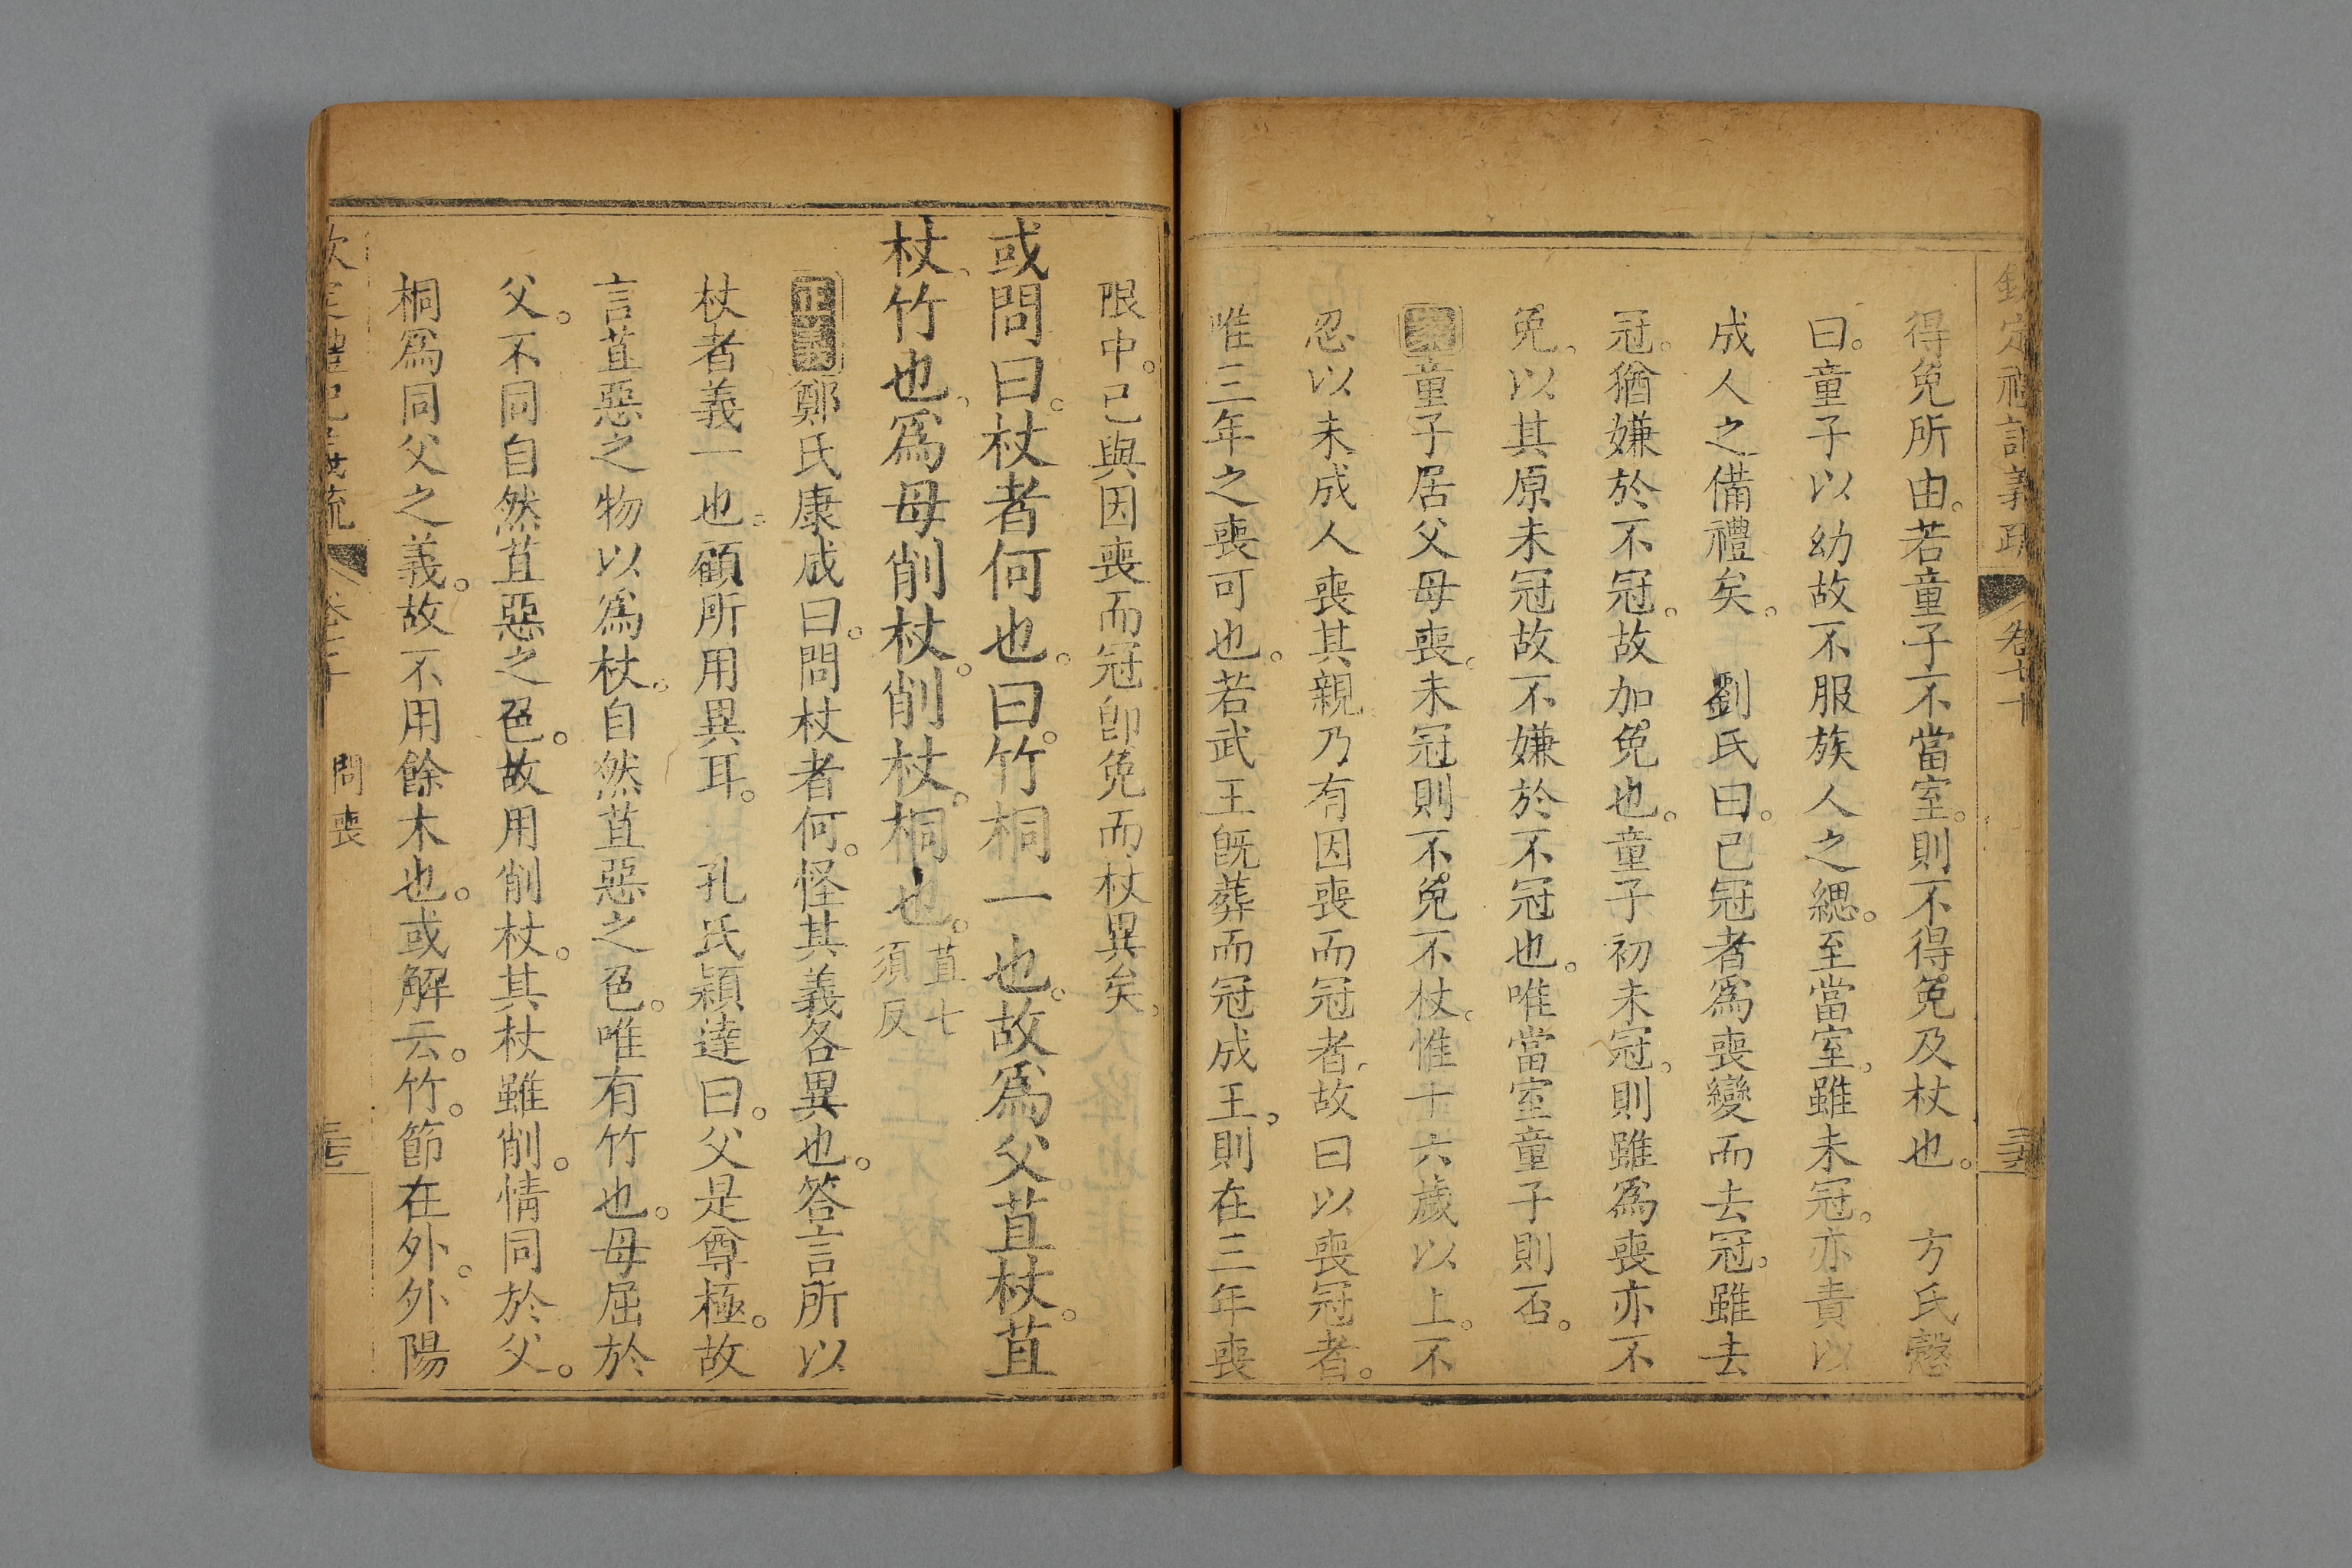 欽定禮記義疏 卷七十
得免所由。若童子不當室。則不得免及杖也。 方氏慤
曰。童子以幼故不服族人之緦。至當室。雖未冠。亦責以
成人之備禮矣。 劉氏曰。已冠者爲喪變而去冠。雖去
冠。猶嫌於不冠。故加免也。童子初未冠。則雖爲喪亦不
免。以其原未冠故不嫌於不冠也。唯當室童子則否。
案童子居父母喪。未冠則不免不杖。惟十六歲以上。不
忍以未成人喪其親乃有因喪而冠者。故曰以喪冠者。
唯三年之喪可也。若武王旣葬而冠成王。則在三年喪
限中。已與因喪而冠卽免而杖異矣。
或問曰。杖者何也。曰。竹桐一也。故爲父苴杖。苴
杖。竹也。爲母削杖。削杖。桐也。苴七須反
正義鄭氏康成曰。問杖者何。怪其義各異也。答言所以
杖者義一也。顧所用異耳。 孔氏穎達曰。父是尊極。故
言苴惡之物以爲杖。自然苴惡之色。唯有竹也。母屈於
父。不同自然苴惡之色。故用削杖。其杖雖削。情同於父。
桐爲同父之義。故不用餘木也。或解云。竹。節在外。外陽
問喪